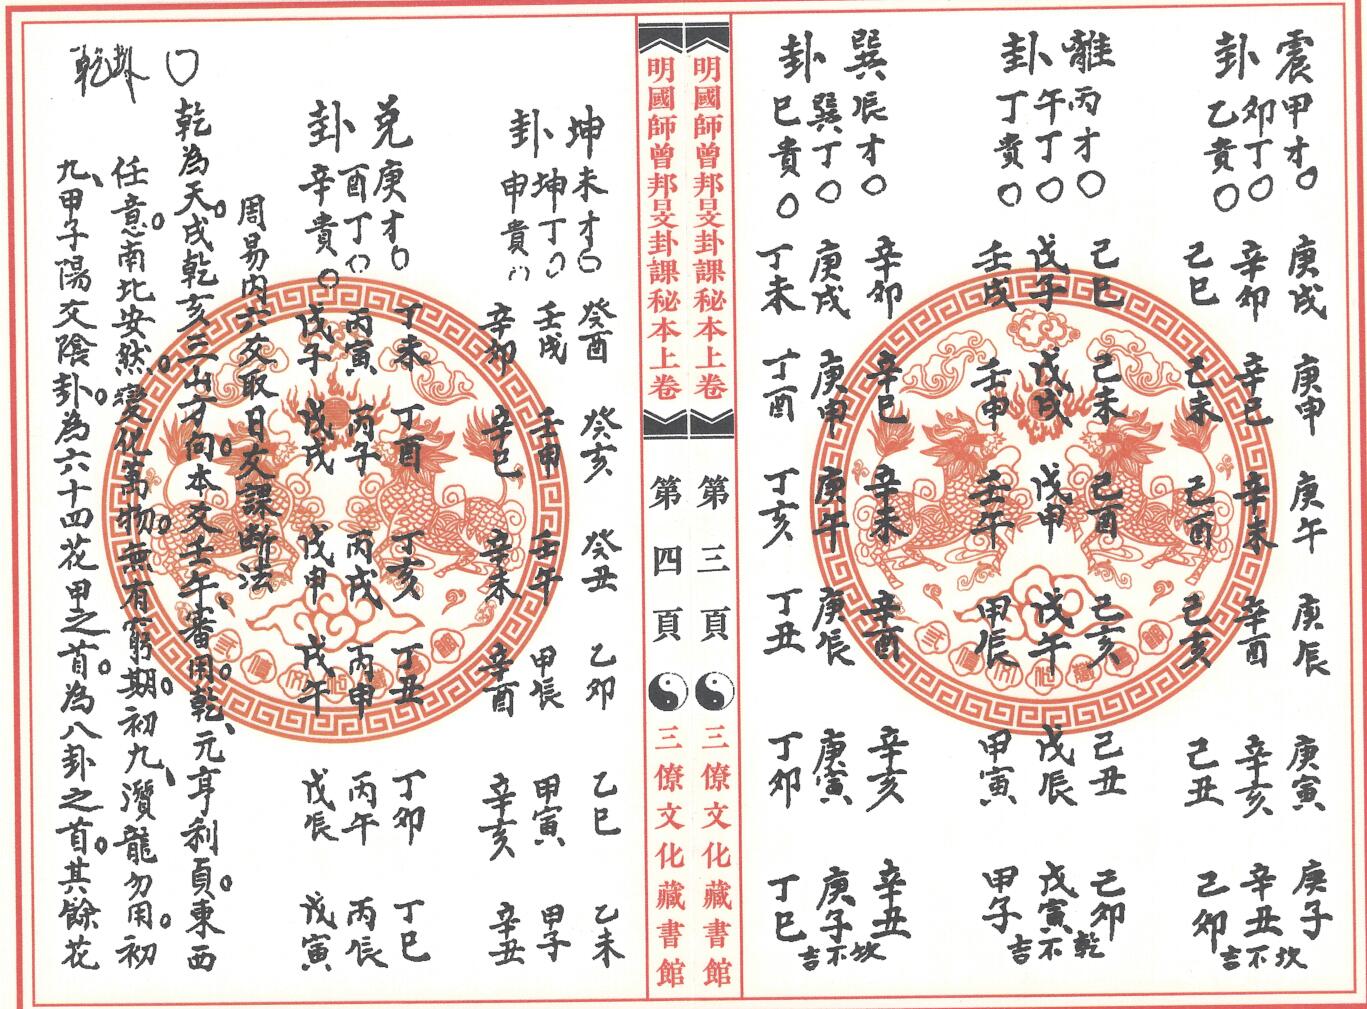 震甲才○ 庚戌 庚申 庚午 庚辰 庚寅 庚子
卯丁○ 辛卯 辛巳 辛未 辛酉 辛亥 辛丑
卦乙貴○ 己巳 己未 己酉 己亥 己丑 己卯
坎不吉
離丙才○ 己巳 己未 己酉 己亥 己丑 己卯
午丁○ 戊子 戊戌 戊申 戊午 戊辰 戊寅
卦丁貴○ 壬戌 壬申 壬午 甲辰 甲寅 甲子
乾不吉
巽辰才○ 辛卯 辛巳 辛未 辛酉 辛亥 辛丑
巽丁○ 庚戌 庚申 庚午 庚辰 庚寅 庚子
卦巳貴○ 丁未 丁酉 丁亥 丁丑 丁卯 丁巳
坎不吉
明國師曾邦旻卦課秘本上卷 第三頁 三僚文化藏書館
明國師曾邦旻卦課秘本上卷 第四頁 三僚文化藏書館
坤未才○ 癸酉 癸亥 癸丑 乙卯 乙巳 乙未
坤丁○ 壬戌 壬申 壬午 甲辰 甲寅 甲子
卦申貴○ 辛卯 辛巳 辛未 辛酉 辛亥 辛丑
兌庚才○ 丁未 丁酉 丁亥 丁丑 丁卯 丁巳
酉丁○ 丙寅 丙子 丙戌 丙申 丙午 丙辰
卦辛貴○ 戊子 戊戌 戊申 戊午 戊辰 戊寅
周易內六爻取日爻課斷法
○乾卦
乾為天。戌乾亥三山才向。本爻壬午、審用。乾、元亨利貞。東西
任意。南北安然。變化萬物。無有窮期。初九、濳龍勿用。初
九、甲子陽爻陰卦。為六十四花甲之首。為八卦之首。其餘花